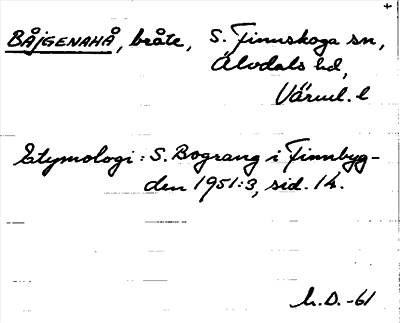 BÅJGENAHÅ, bråte, S. Finnskoga sn,
Älvdals hd,
Värml. l
Etymologi: S. Bograng i Finnbyg-
den 1951:3, sid. 14.
L.D. -61